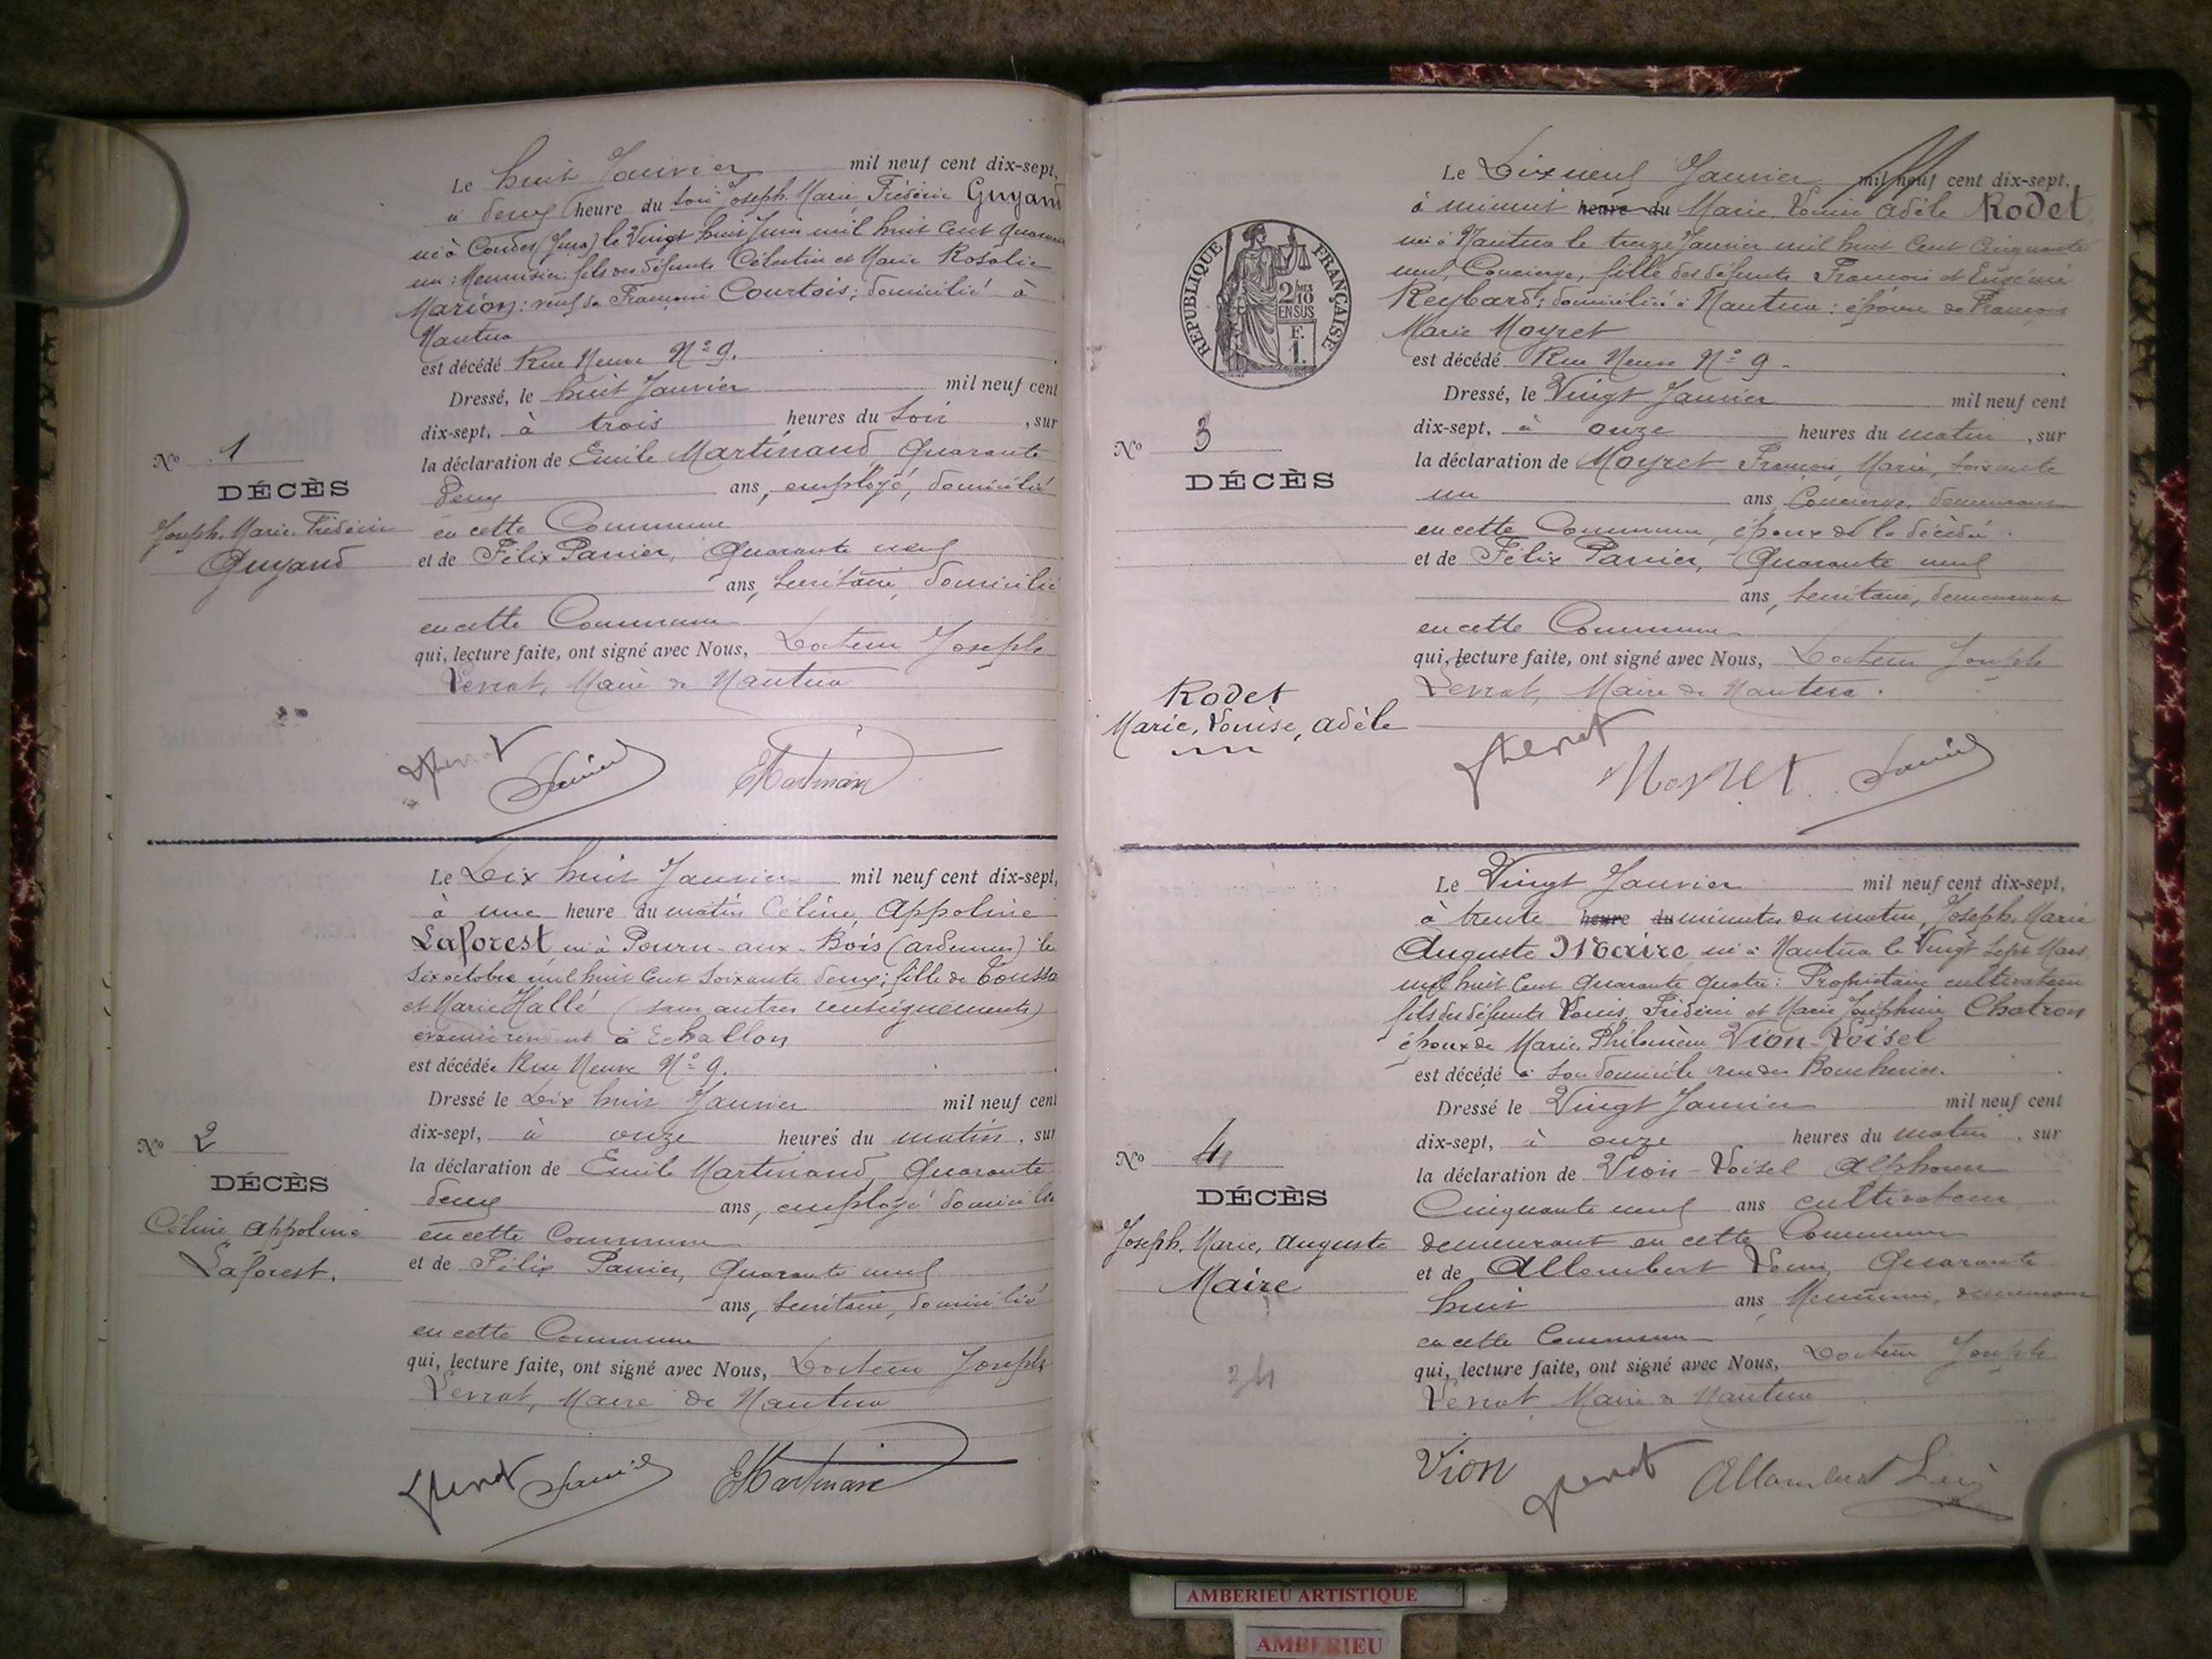 Le huit Janvier mil neuf cent dix-sept,
à deux heure du soir Joseph. Marie Frédéric Guyand
né à Condes (Jura) le Vingt huit Juin mil huit cent quarante
un : Menuisier : fils des défunts Célestin et Marie Rosalie
Marion : veuf de Françoise Courtois ; domicilié à
Nantua
est décédé Rue Neuve No 9.
Dressé, le huit Janvier mil neuf cent
dix-sept, à trois heures du Soir , sur
la déclaration de Emile Martinand Quarante
deux ans, employé, domicilié
en cette Commune
et de Félix Panier, Quarante neuf
ans, Secrétaire, domicilié
en cette Commune
qui, lecture faite, ont signé avec Nous, Docteur Joseph
Levrat, Maire de Nantua
No 1
DÉCÈS
Joseph. Marie. Frédéric
Guyand
Le Dix huit Janvier mil neuf cent dix-sept,
à une heure du matin Céline Appoline
Laforest né à Pouru-aux-Bois (Ardennes) le
Six octobre mil huit Cent Soixante deux ; fille de Toussa
et Marie Hallé (sans autres renseignements)
à Echallon
est décédée Rue Neuve No 9.
Dressé le Dix huit Janvier mil neuf cent
dix-sept, à onze heures du matin , sur
la déclaration de Emile Martinand Quarante
deux ans, employé domicilié
en cette Commune
et de Félix Panier, Quarante neuf
ans, Secrétaire, domicilié
en cette Commune
qui, lecture faite, ont signé avec Nous, Docteur Joseph
Levrat, Maire de Nantua
No 2
DÉCÈS
Céline Appoline
Laforest.
EMartinand
Le Dix neuf Janvier mil neuf cent dix-sept,
à minuit heure du Marie Louise Adèle Rodet,
né à Nantua le treize Janvier mil huit Cent Cinquante
neuf, Concierge, fille des défunts François et Eugénie
Reybard ; domiciliée à Nantua : épouse de François
Marie Moyret
est décédé Rue Neuve No 9 -
Dressé, le Vingt Janvier mil neuf cent
dix-sept, à onze heures du matin , sur
la déclaration de Moyret François Marie, Soixante
un ans Concierge, demeurant
en cette Commune, époux de la décédée.
et de Félix Panier, Quarante neuf
ans, Secrétaire, demeurant
en cette Commune
qui, lecture faite, ont signé avec Nous, Docteur Joseph
Levrat, Maire de Nantua.
RÉPUBLIQUE FRANÇAISE
2/10
EN SUS
F.
1.
No 3
DÉCÈS
Rodet
Marie, Louise, Adèle
Moyret
Le Vingt Janvier mil neuf cent dix-sept,
à trente heure du minutes du matin, Joseph. Marie
Auguste Maire né à Nantua le Vingt Sept Mars
mil huit Cent Quarante Quatre : Propriétaire cultivateur
fils des défunts Louis Frédéric et Marie Joséphine Chatron
époux de Marie. Philomène Vion-Loisel
est décédé à son domicile rue des Boucheries.
Dressé le Vingt Janvier mil neuf cent
dix-sept, à onze heures du matin , sur
la déclaration de Vion-Loisel Alphonse
Cinquante neuf ans cultivateur
demeurant en cette Commune
et de Allombert Louis Quarante
huit ans, Menuisier, demeurant
en cette Commune
qui, lecture faite, ont signé avec Nous, Docteur Joseph
Levrat Maire de Nantua
No 4
DÉCÈS
Joseph, Marie, Auguste
Maire
34
Vion
Levrat
Allombert
AMBERIEU ARTISTIQUE
AMBERIEU